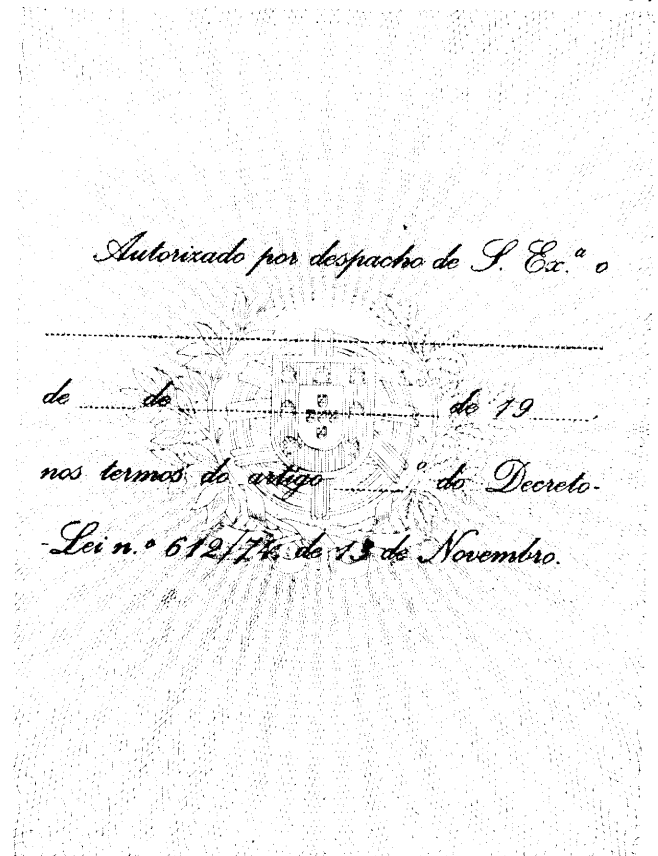 Autorizado por despacho de S. Ex.ª o
de ...... de .............................. de 19......,
nos termos do artigo .........º do Decreto-
-Lei n.º 612/74, de 13 de Novembro.